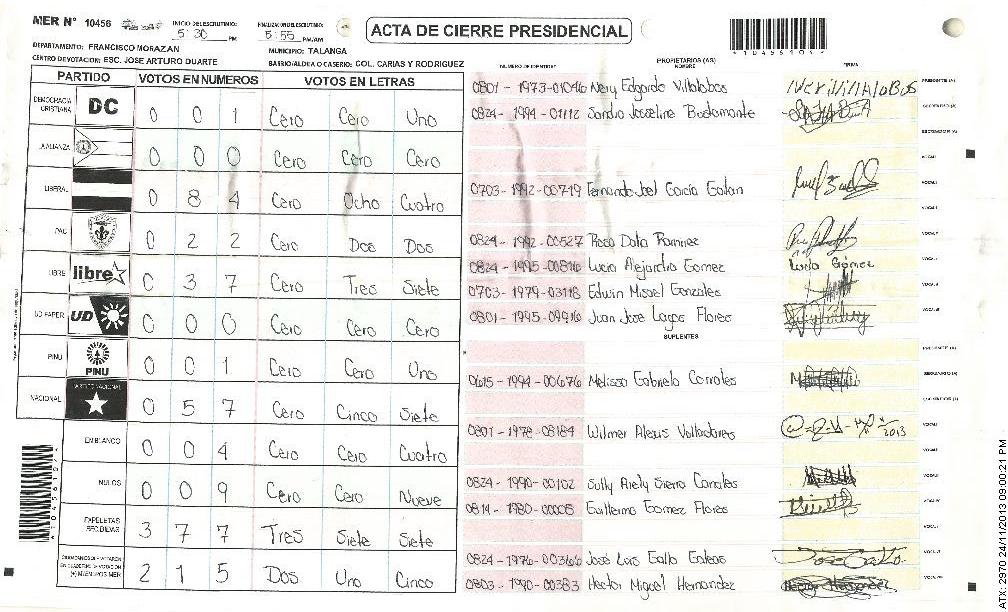 MER N° 10456
INICIO DEL ESCRUTINIO:
5:30 PM
FINALIZACION DEL ESCRUTINIO:
5:55 PM/AM
ACTA DE CIERRE PRESIDENCIAL
DEPARTAMENTO: FRANCISCO MORAZAN
MUNICIPIO: TALANGA
CENTRO DE VOTACION: ESC. JOSE ARTURO DUARTE
BARRIO/ALDEA O CASERIO: COL. CARIAS Y RODRIGUEZ
PARTIDO VOTOS EN NUMEROS VOTOS EN LETRAS
DEMOCRACIA CRISTIANA DC 0 0 1 Cero Cero Uno
LA ALIANZA 0 0 0 Cero Cero Cero
LIBERAL 0 8 4 Cero Ocho Cuatro
PAC 0 2 2 Cero Dos Dos
LIBRE libre 0 3 7 Cero Tres Siete
UD FAPER UD 0 0 0 Cero Cero Cero
PINU PINU 0 0 1 Cero Cero Uno
NACIONAL PARTIDO NACIONAL 0 5 7 Cero Cinco Siete
EN BLANCO 0 0 4 Cero Cero Cuatro
NULOS 0 0 9 Cero Cero Nueve
PAPELETAS RECIBIDAS 3 7 7 Tres Siete Siete
CIUDADANOS QUE VOTARON EN CUADERNO DE VOTACION (+) MIEMBROS MER 2 1 5 Dos Uno Cinco
NUMERO DE IDENTIDAD
PROPIETARIOS (AS)
NOMBRE
FIRMA
0801 - 1973-01046 Nery Edgardo Villalobos
0824 - 1994-01112 Sandra Joseline Bustamante
0703-1992-00719 Fernando Joel García Gaitan
0824 - 1992-00527 Rosa Dalia Ramirez
0824 - 1995-00816 Lucia Alejandra Gomez Lucia Gómez
0703-1979-03118 Edwin Misael Gonzales
0801-1995-09916 Juan Jose Lagos Flores
SUPLENTES
0615-1994-00676 Melissa Gabriela Corrales
0801-1978-08184 Wilmer Alexis Valladares
0824-1990-00102 Sully Ariely Sierra Canales
0814-1980-00005 Guillermo Gomez Flores
0824-1976-00366 José Luis Gallo Galeas
0803-1990-00383 Hector Miguel Hernandez
*10456101*
ATX-2970 24/11/2013 09:00:21 PM